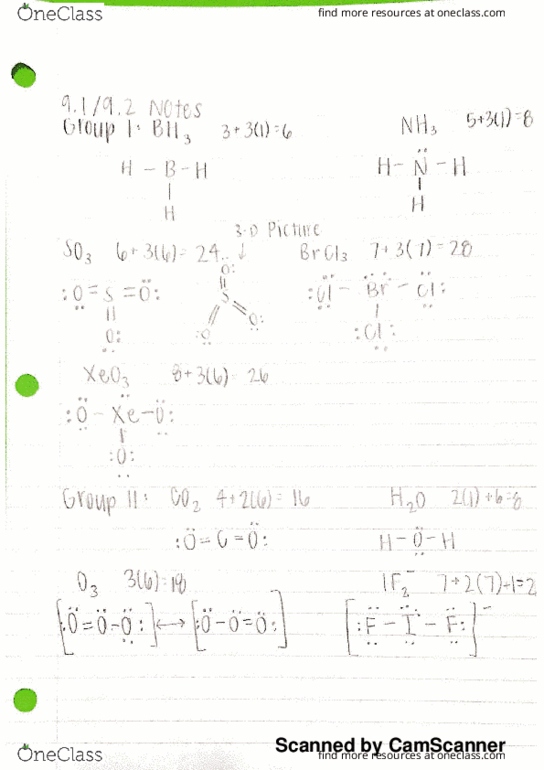 OneClass find more resources at oneclass.com
9.1/9.2 Notes
Group I: BH₃ 3+3(1)=6 NH₃ 5+3(1)=8
H - B - H H - N - H
H H
3-D Picture
SO₃ 6+3(6)=24 ↓ BrCl₃ 7+3(7)=28
:O = S = O: O: :Cl - Br - Cl:
S
O: :O O: :Cl:
XeO₃ 8+3(6) 26
:O - Xe - O:
:O:
Group II: CO₂ 4+2(6)=16 H₂O 2(1)+6=8
:O = C = O: H - O - H
O₃ 3(6)=18 IF₂⁻ 7+2(7)+1=2
[:O = O - O:] ↔ [:O - O = O:] [:F - I - F:]⁻
Scanned by CamScanner
OneClass find more resources at oneclass.com